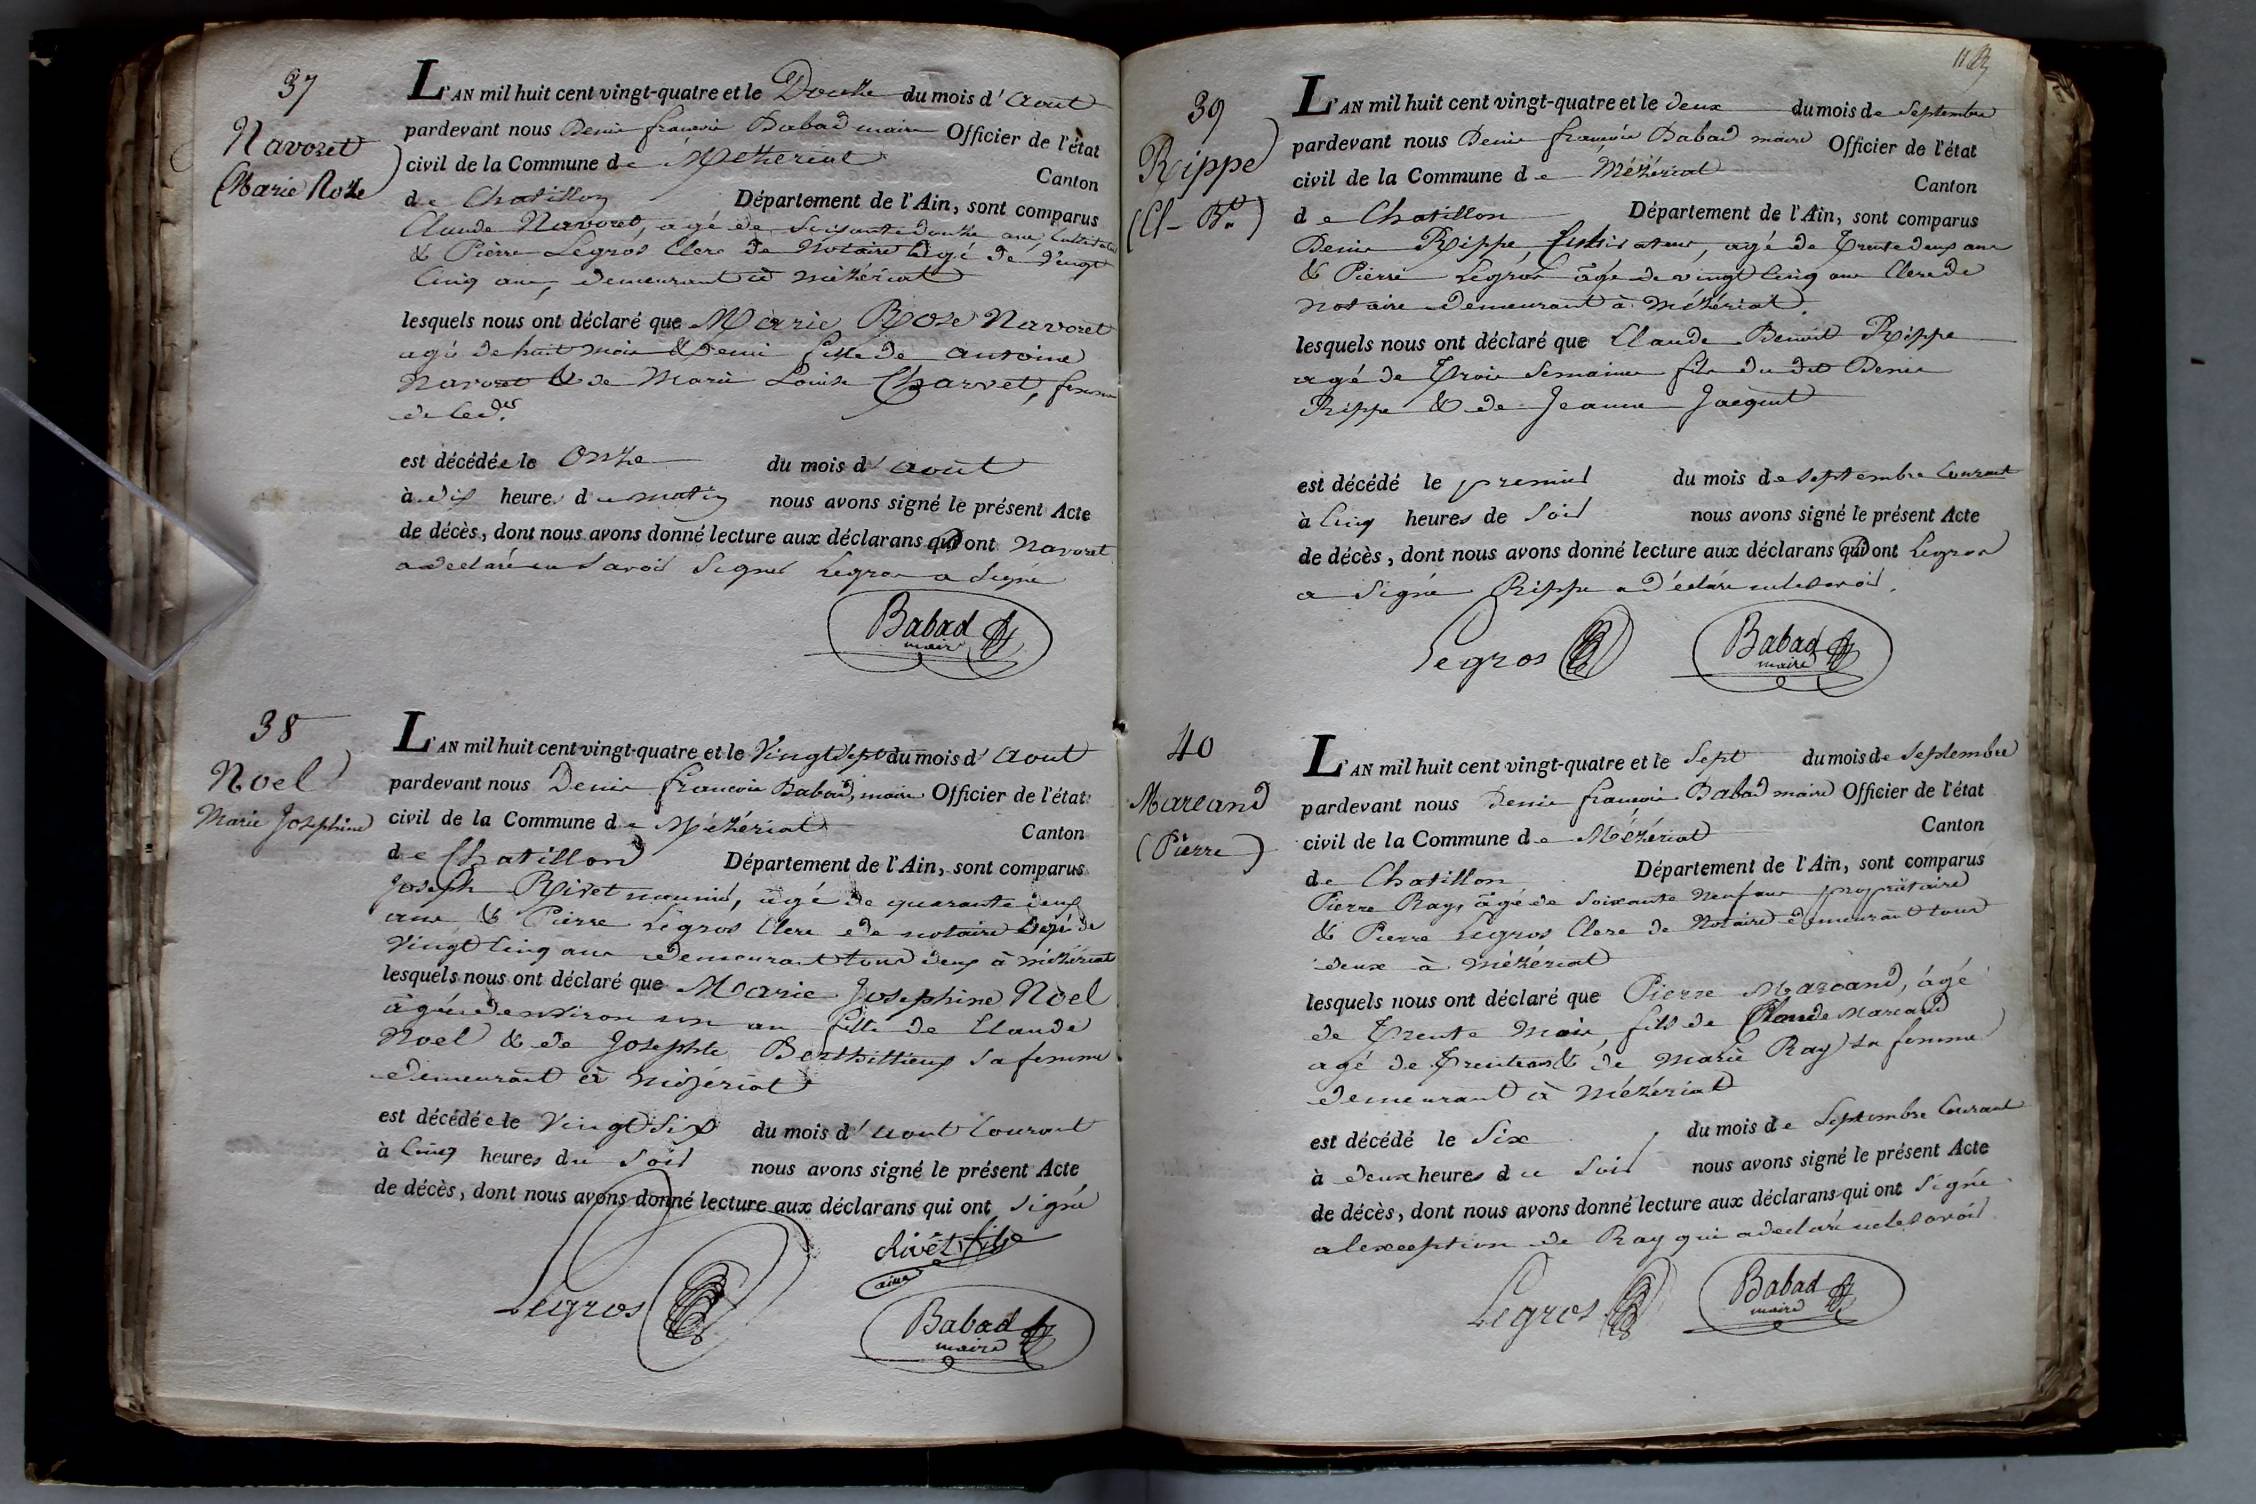 37
Navoret
(Marie Roze
L'AN mil huit cent vingt-quatre et le Douze du mois d'aout
pardevant nous Denis françois Babad maire Officier de l'état
civil de la Commune de Mézériat Canton
de Chatillon Département de l'Ain, sont comparus
Claude Navoret, agé de soixante douze ans, Cultivateur
& Pierre Legros Clerc de Notaire agé de vingt
Cinq ans, demeurant à mézériat
lesquels nous ont déclaré que Marie Rose Navoret
agé de huit mois & Demi fille de antoine
Navoret & de Marie Louise Charvet, femme
est décédée le Onze du mois d'aout
à dix heures du matin nous avons signé le présent Acte
de décès, dont nous avons donné lecture aux déclarans qui ont Navoret
a declaré ne savoir signer Legros a signé
Babad
maire
38
Noel
Marie Josephine
L'AN mil huit cent vingt-quatre et le vingt sept du mois d'aout
pardevant nous Denis françois Babad, maire Officier de l'état
civil de la Commune de Mézériat Canton
de Chatillon Département de l'Ain, sont comparus
Joseph Rivet, agé de quarante deux
ans & Pierre Legros Clerc de notaire agé de
vingt Cinq ans demeurant tous deux à mézériat
lesquels nous ont déclaré que Marie Josephine Noel
agée denviron un an fille de Claude
Noel & de Josephte Berthillieux sa femme
demeurant à mézériat
est décédée le vingt six du mois d'aout Courant
à Cinq heures du soir nous avons signé le présent Acte
de décès, dont nous avons donné lecture aux déclarans qui ont signé
Rivet fils
ainé
Legros
Babad
maire
39
Rippe
(Cl- Bt)
L'AN mil huit cent vingt-quatre et le deux du mois de septembre
pardevant nous Denis françois Babad maire Officier de l'état
civil de la Commune de Mézériat Canton
de Chatillon Département de l'Ain, sont comparus
Denis Rippe, Cultivateur, agé de Trente deux ans
& Pierre Legros agé de vingt Cinq ans Clerc de
notaire demeurant à mézériat.
lesquels nous ont déclaré que Claude Benoit Rippe
agé de Trois semaines fils du dit Denis
Rippe & de Jeanne Jacquet
est décédé le premier du mois de septembre Courant
à Cinq heures de soir nous avons signé le présent Acte
de décès, dont nous avons donné lecture aux déclarans qui ont Legros
a signé Rippe a Déclaré ne le savoir.
Legros
Babad
maire
40
Marcand
(Pierre)
L'AN mil huit cent vingt-quatre et le sept du mois de septembre
pardevant nous Denis françois Babad maire Officier de l'état
civil de la Commune de Mézériat Canton
de Chatillon Département de l'Ain, sont comparus
Pierre Ray, agé de soixante neuf ans propriétaire
& Pierre Legros Clerc de Notaire demeurant tous
deux à mézériat
lesquels nous ont déclaré que Pierre Marcand, agé
de Trente mois, fils de Claude Marcand
agé de Trente ans & de Marie Ray sa femme
demeurant à mézériat
est décédé le six du mois de septembre Courant
à deux heures du soir nous avons signé le présent Acte
de décès, dont nous avons donné lecture aux déclarans qui ont signé
a lexception de Ray qui a declaré ne le savoir.
Legros
Babad
maire